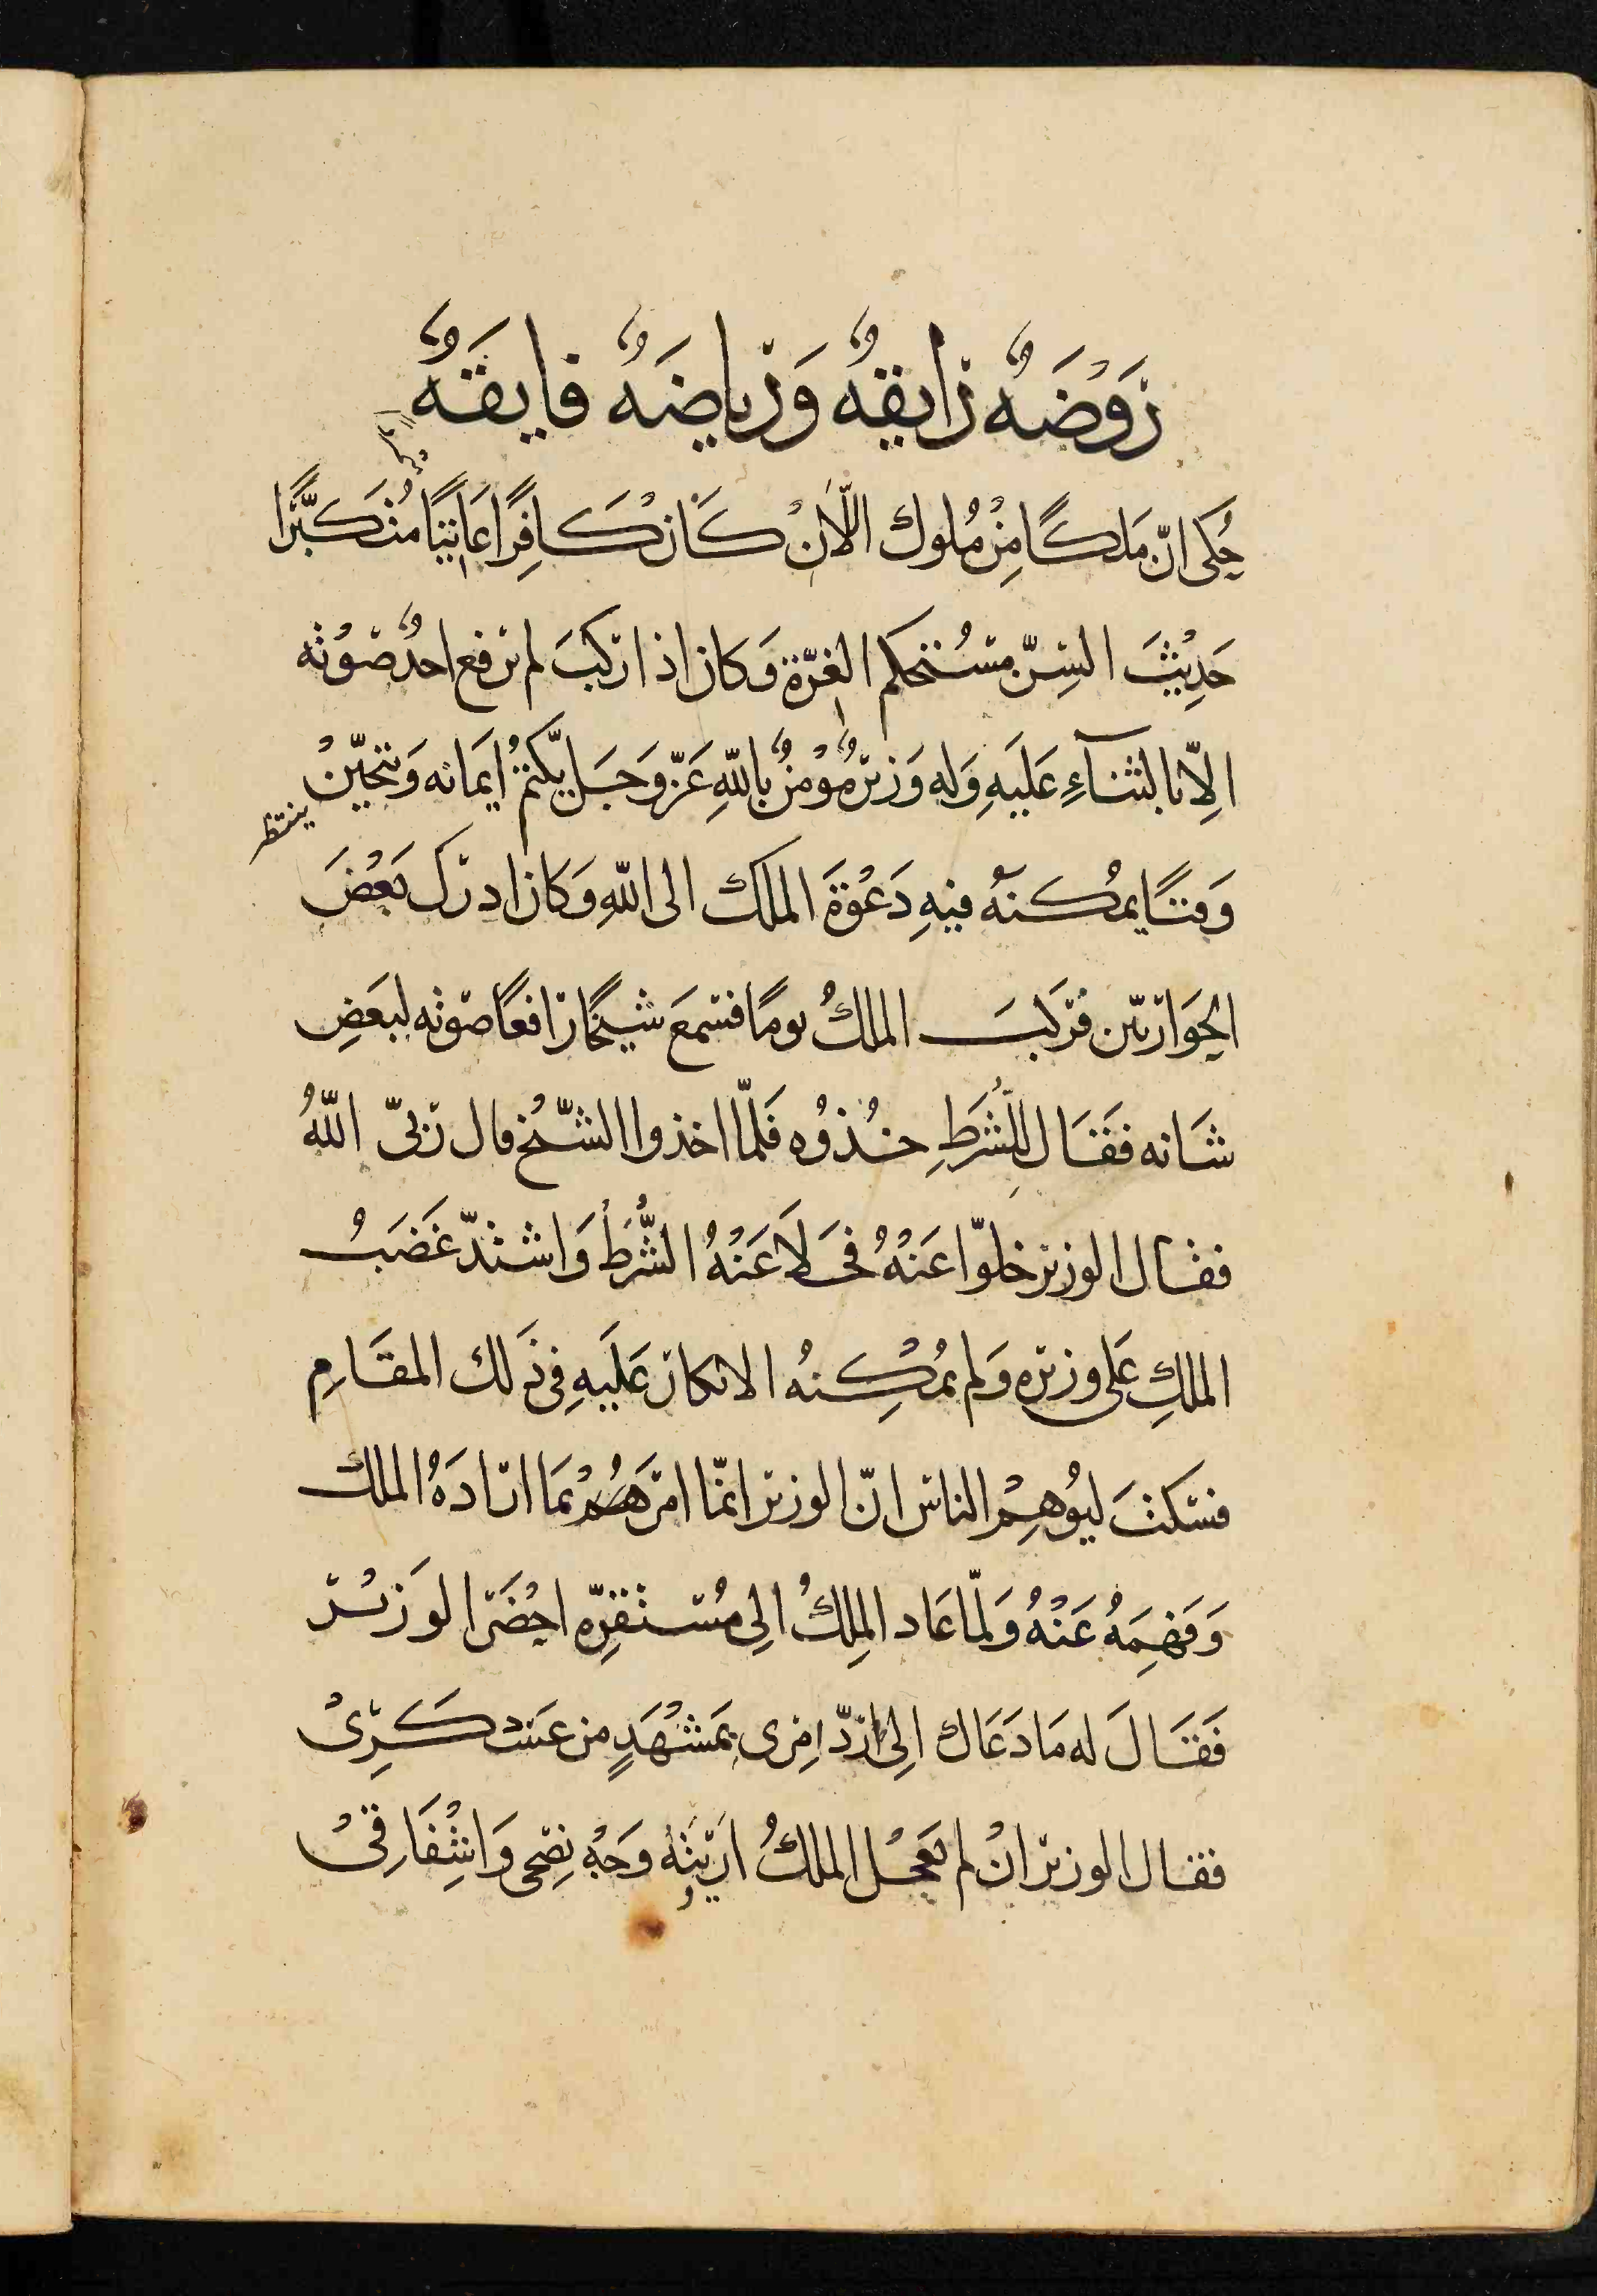 رَوْضَهٌ رايقهٌ وَرياضَهٌ فايقَهٌ
حُكى انّ مَلكًا مِنْ مُلوك اللّانْ كَانَ كَافِرًا عَاتيًا مُتَكبّرًا
حَدِيْثَ السِنّ مسْتحكم الغرّة وَكان اذا ركبَ لم يرفع احدٌ صَوْته
الِاّ بالثنآءِ عَليَهِ وَله وَزيرٌ مُوْمنٌ باللهِ عَزّ وَجَل يكتمُ ايمَانه وَيتحيّنْ
ينتظر
وَقتًا يمكنهُ فيهِ دَعْوةَ الملك الى اللهِ وَكان ادرك بَعْضَ
الحَوَاريّين فركبَ الملكُ يومًا فسمعَ شيخًا رافعًا صوته لبعَضِ
شَانه فقَال للشُرَطِ خُذوْه فَلمّا اخذوا الشّيْخ قال ربىّ اللهُ
فقال الوزير خلّوا عَنْهُ فخَلَا عَنْهُ الشُّرَطُ وَاشتدّ غَضَبُ
الملكِ عَلى وزيره وَلم يمُكِنهُ الانكار عَليَهِ فى ذَلك المقَامِ
فسكتَ ليُوهِمْ الناس انّ الوزير انمّا امرَهُمْ بمَا ارَادَهُ الملك
وَفهِمَهُ عَنْهُ وَلمّا عَاد المِلكُ الِى مُستقرِّه احْضَر الوَزيْر
فَقَالَ له مَا دَعَاك الِى ردّ امِرى بمَشْهَدٍ من عَسْكَرِىْ
فقال الوزير انْ لم يَعجْل الملكُ ارَيْتهُ وَجْهِ نصِحى وَاشِفَاقِىْ